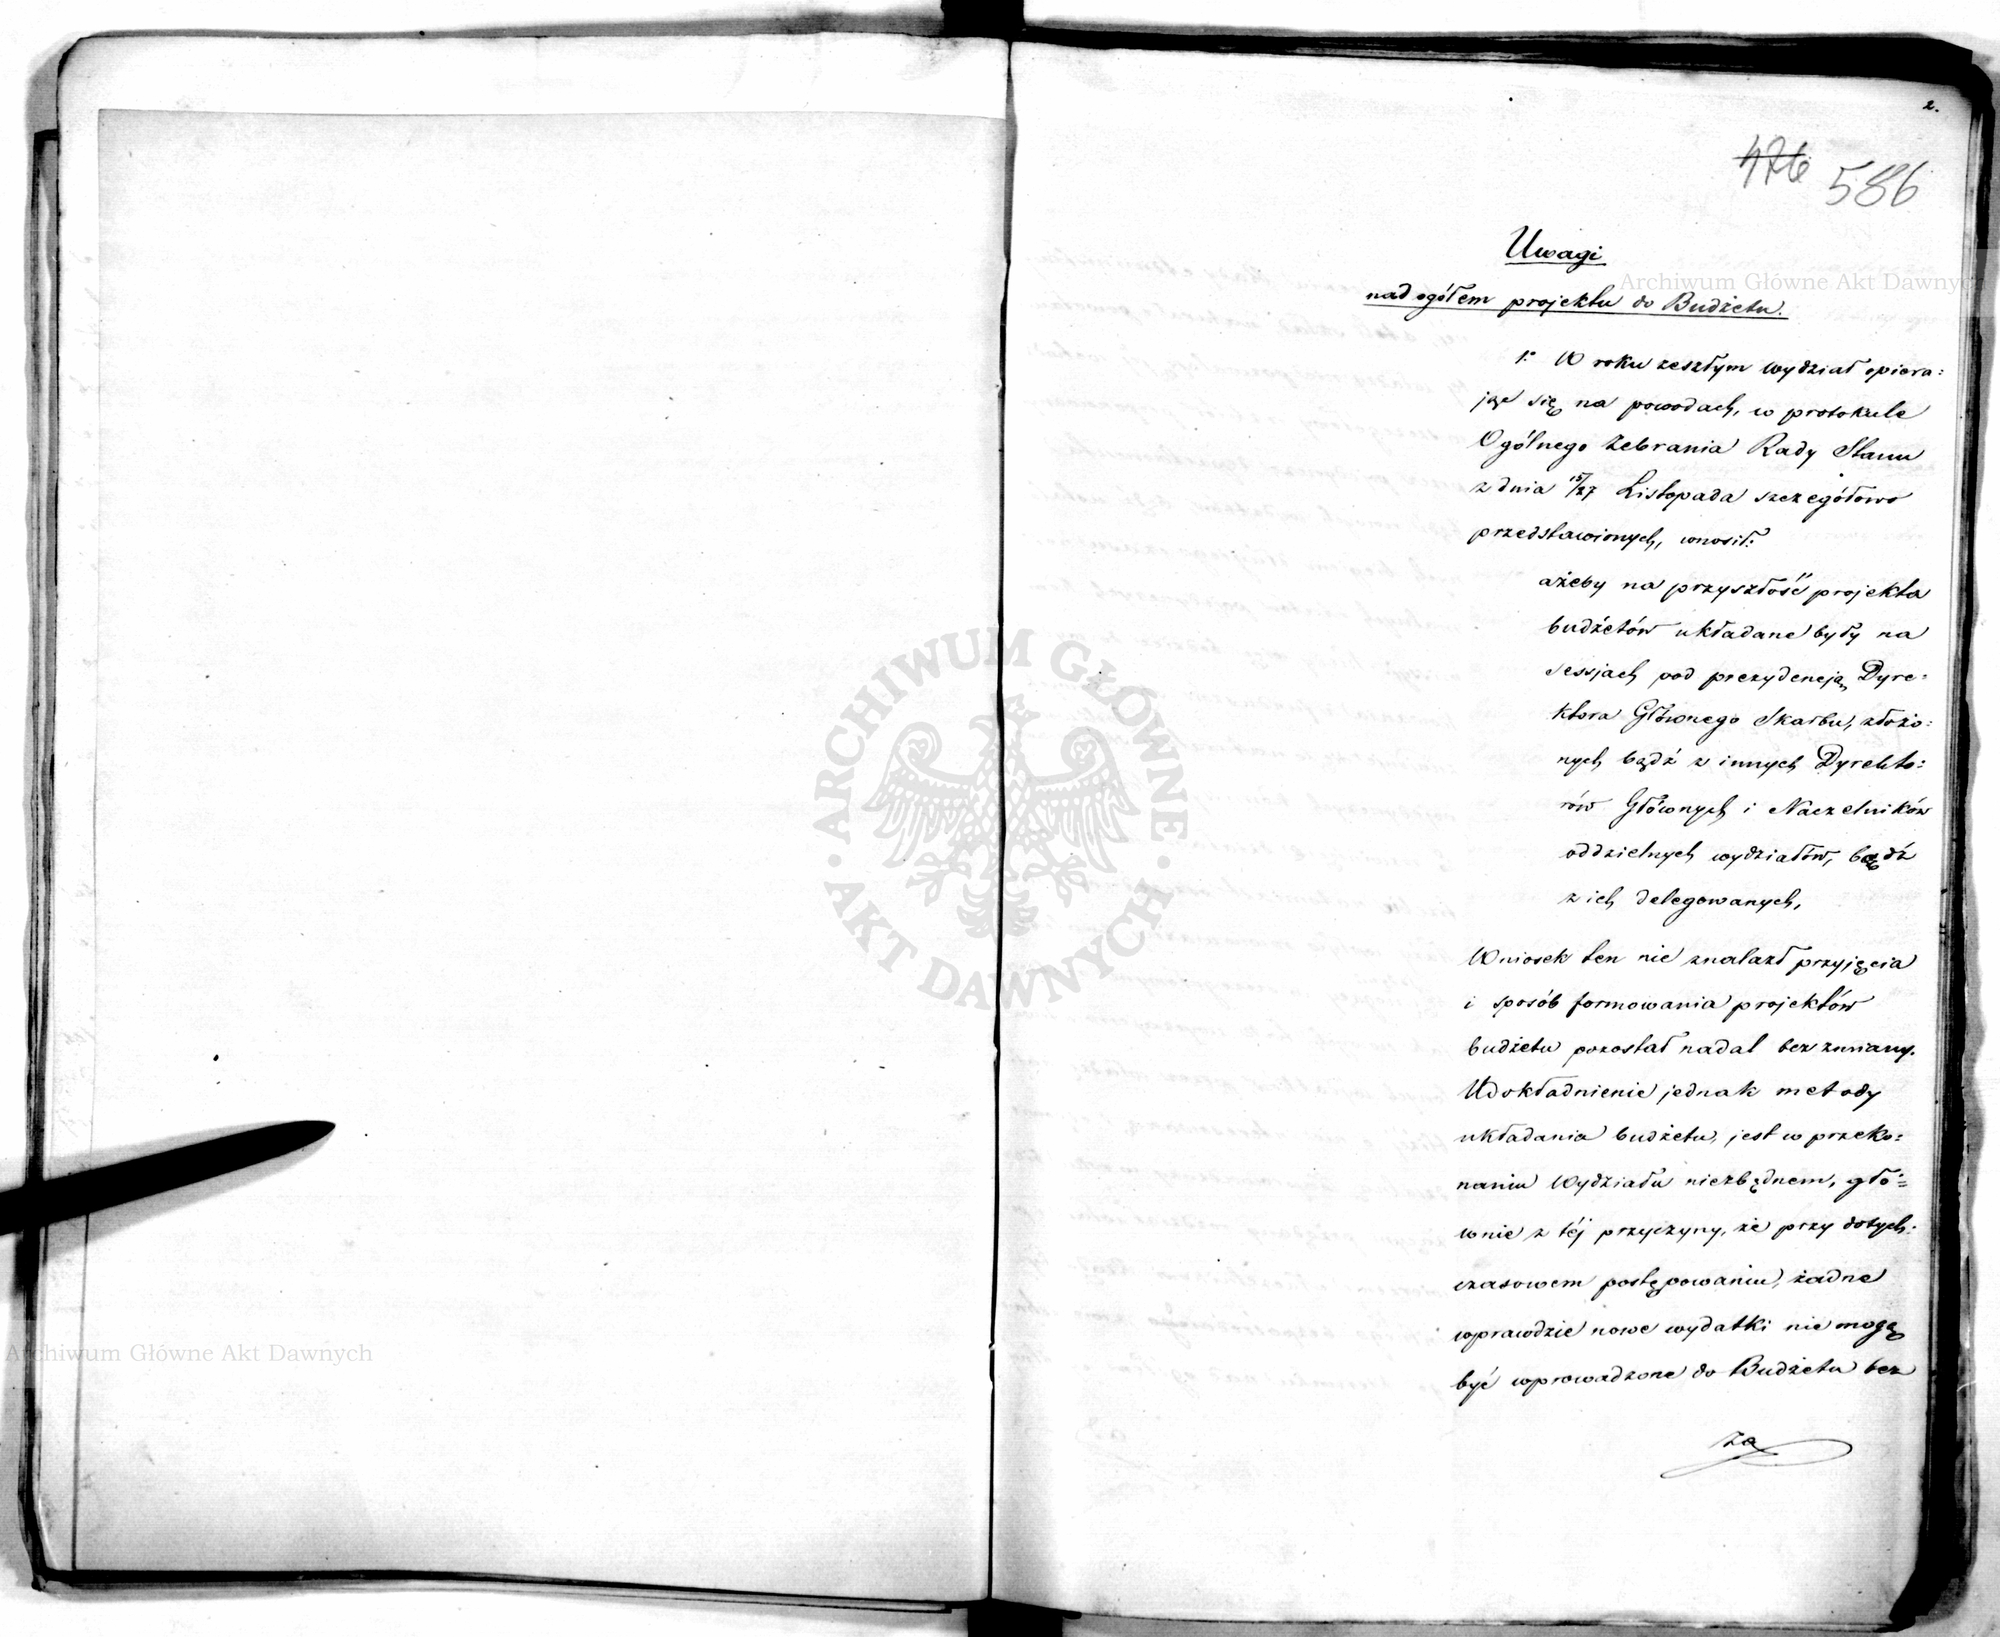 2.
476 586
Uwagi
nad ogółem projektu do Budżetu.
1o W roku zeszłym Wydział opiera=
jąc się na powodach, w protokule
Ogólnego Zebrania Rady Stanu
z dnia 15/27 Listopada szczegółowo
przedstawionych, wnosił:
ażeby na przyszłość projekta
budżetów układane były na
sessjach pod prezydencją Dyre=
ktora Głównego Skarbu, złożo=
nych bądź z innych Dyrekto=
rów Głównych i Naczelników
oddzielnych wydziałów, bądź
z ich delegowanych,
Wniosek ten nie znalazł przyjęcia
i sposób formowania projektów
budżetu pozostał nadal bez zmiany.
Udokładnienie jednak metody
układania budżetu, jest w przeko=
naniu Wydziału niezbędnem, głó=
wnie z téj przyczyny, że przy dotych=
czasowem postępowaniu, żadne
wprawdzie nowe wydatki nie mogą
być wprowadzone do Budżetu bez
za
Archiwum Główne Akt Dawnych
ARCHIWUM GŁÓWNE
AKT DAWNYCH
Archiwum Główne Akt Dawnych